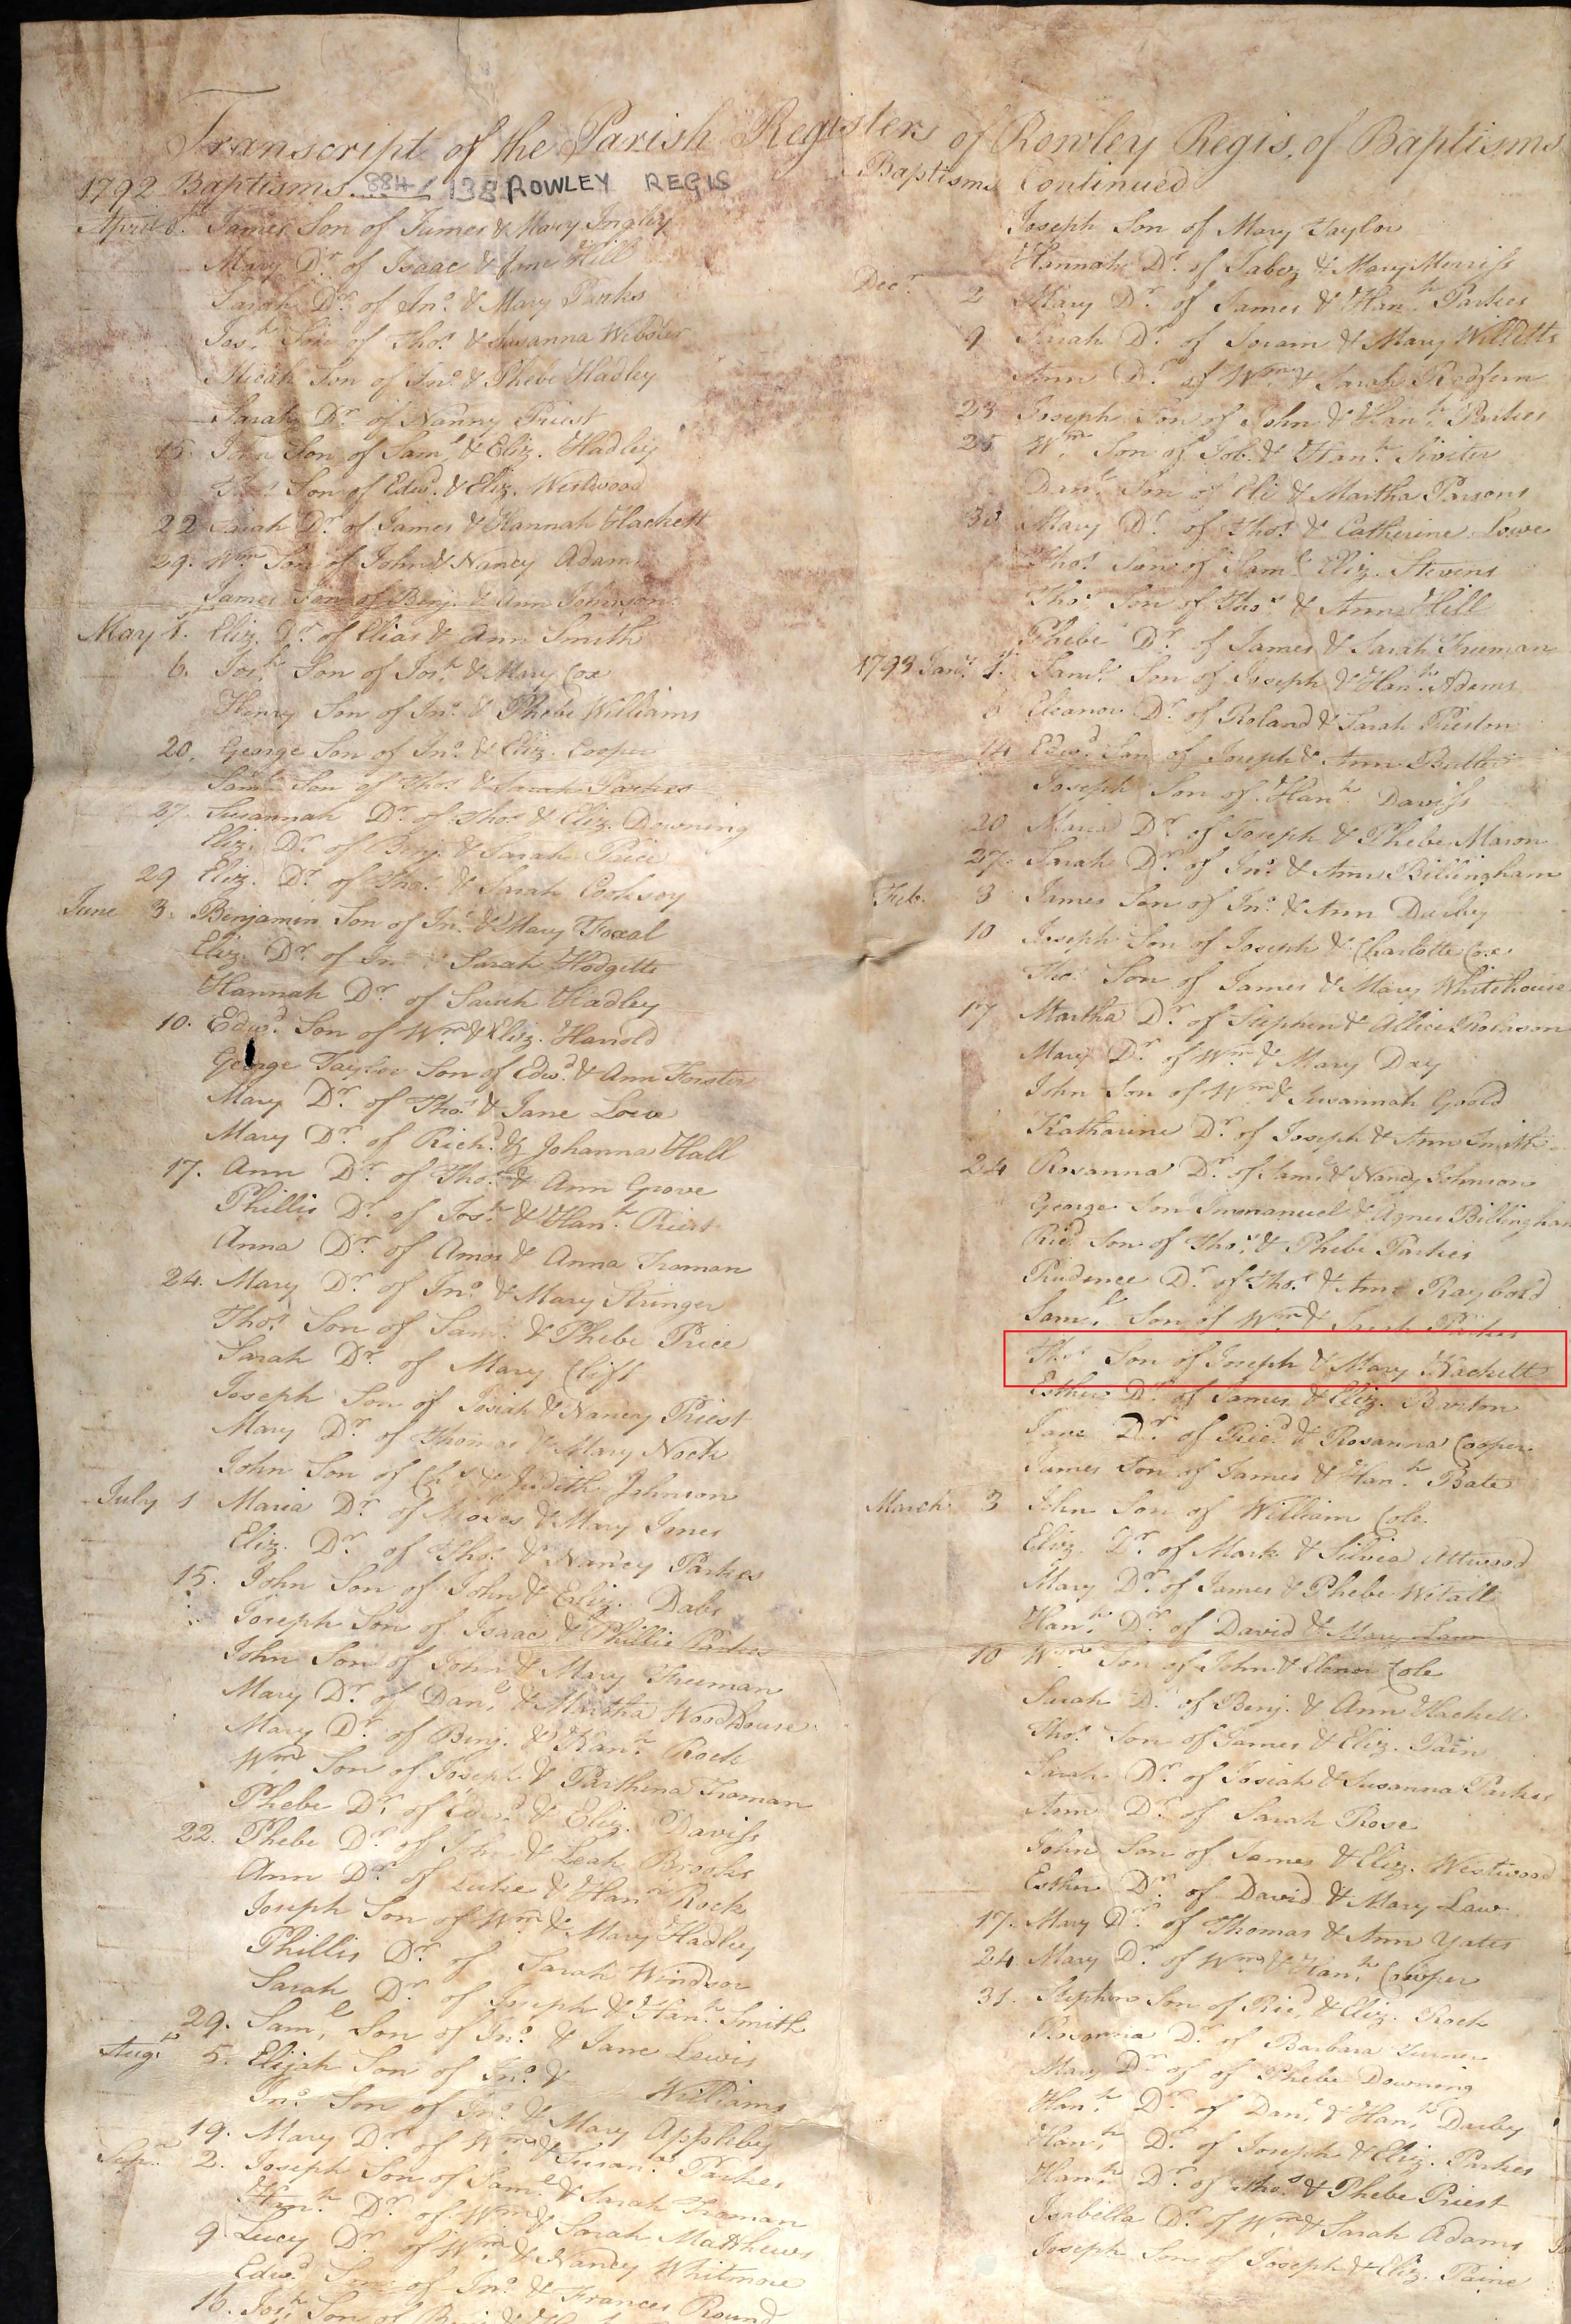 Transcript of the Parish Registers of Rowley Regis, of Baptisms
1792 Baptisms. 884/138 ROWLEY REGIS
April 8. James Son of James & Mary Ingley
Mary Dr. of Isaac & Jane Hill
Sarah Dr. of Jno. & Mary Parks
Josh. Son of Thos. & Susanna Webster
Micah Son of Jno. & Phebe Hadley
Sarah Dr. of Nanny Priest
15. Son of Saml. & Eliz. Hadley
Son of Edwd. & Eliz. Westwood
22 Sarah Dr. of James & Hannah Hackett
29. Wm. Son of John & Nancy Adams
James Son of Benj. & Ann Johnson
May 1. Eliz. Dr. of Elias & Ann Smith
6. Josh. Son of Josh. & Mary Cox
Henry Son of Jno. & Phebe Williams
20. George Son of Jno. & Eliz. Cooper
Saml. Son of Thos. & Sarah Parkes
27. Susannah Dr. of Thos. & Eliz. Downing
Eliz. Dr. of Benj. & Sarah Price
29 Eliz. Dr. of Thos. & Sarah Cooksey
June 3. Benjamin Son of Jno. & Mary Foxal
Eliz. Dr. of Jno. & Sarah Hodgetts
Hannah Dr. of Sarah Hadley
10. Edwd. Son of Wm. & Eliz. Harold
George Taylor Son of Edwd. & Ann Forster
Mary Dr. of Thos. & Jane Lowe
Mary Dr. of Richd. & Johanna Hall
17. Ann Dr. of Thos. & Ann Grove
Phillis Dr. of Josh. & Hanh. Priest
Anna Dr. of Amos & Anna Troman
24. Mary Dr. of Jno. & Mary Stringer
Thos. Son of Saml. & Phebe Price
Sarah Dr. of Mary Cliff
Joseph Son of Josiah & Nancy Priest
Mary Dr. of Thomas & Mary Nock
John Son of Chs. & Judith Johnson
July 1 Maria Dr. of Moses & Mary Jones
Eliz. Dr. of Thos. & Nancy Parkes
15. John Son of John & Eliz. Dabs
Joseph Son of Isaac & Phillis Parkes
John Son of John & Mary Freeman
Mary Dr. of Danl. & Martha Woodhouse
Mary Dr. of Benj. & Hanh. Rock
Wm. Son of Joseph & Parthena Troman
Phebe Dr. of Edwd. & Eliz. Daviss
22. Phebe Dr. of John & Leah Brooks
Ann Dr. of Luke & Hanh. Rock
Joseph Son of Wm. & Mary Hadley
Phillis Dr. of Sarah Windsor
Sarah Dr. of Joseph & Hanh. Smith
29. Saml. Son of Jno. & Jane Lewis
Augt. 5. Elijah Son of Jno. & Williams
Jno. Son of Jno. & Mary Appleby
19. Mary Dr. of Wm. & Susanh. Parkes
Sepr. 2. Joseph Son of Saml. & Sarah Troman
Hanh. Dr. of Wm. & Sarah Matthews
9. Lucy Dr. of Wm. & Nancy Whitmore
Edwd. Son of Jno. & Frances Round
16. Josh. Son of
Baptisms Continued
Joseph Son of Mary Taylor
Hannah Dr. of Jabez & Mary Morriss
Decr. 2 Mary Dr. of James & Hanh. Parkes
9 Sarah Dr. of Joram & Mary Willetts
Ann Dr. of Wm. & Sarah Redfern
23 Joseph Son of John & Hanh. Parkes
25 Wm. Son of Job & Hanh. Siviter
Danl. Son of Eli & Martha Parsons
30 Mary Dr. of Thos. & Catherine Lowe
Thos. Son of Saml. Eliz. Stevens
Thos. Son of Thos. & Ann Hill
Phebe Dr. of James & Sarah Freeman
1793 Jany. 1. Saml. Son of Joseph & Hanh. Adems
Eleanor Dr. of Roland & Sarah Preston
14 Edwd. Son of Joseph & Ann Butler
Joseph Son of Hanh. Daviss
20 Maria Dr. of Joseph & Phebe Mason
27. Sarah Dr. of Jno. & Ann Billingham
Feb. 3 James Son of Jno. & Ann Darby
10 Joseph Son of Joseph & Charlotte Cox
Thos. Son of James & Mary Whitehouse
17 Martha Dr. of Stephen & Allice Rolason
Mary Dr. of Wm. & Mary Day
John Son of Wm. & Susannah Goold
Katharine Dr. of Joseph & Ann Smith
24 Rosanna Dr. of Saml. & Nancy Johnson
George Son Immanuel & Agnes Billingham
Ricd. Son of Thos. & Phebe Parkes
Prudence Dr. of Thos. & Ann Raybold
Saml. Son of Wm. & Sarah Parkes
Thos. Son of Joseph & Mary Hackett
Esther Dr. of James & Eliz. Barton
Jane Dr. of Ricd. & Rosanna Cooper
James Son of James & Hanh. Bate
March 3 John Son of William Cole
Eliz. Dr. of Mark & Silvia Attwood
Mary Dr. of James & Phebe Witall
Hanh. Dr. of David & Mary Law
10 Wm. Son of John & Elenor Cole
Sarah Dr. of Benj. & Ann Hackett
Thos. Son of James & Eliz. Pain
Sarah Dr. of Josiah & Susanna Parkes
Ann Dr. of Sarah Rose
John Son of James & Eliz. Westwood
Esther Dr. of David & Mary Law
17. Mary Dr. of Thomas & Ann Yates
24 Mary Dr. of Wm. & Hanh. Cowper
31. Stephen Son of Ricd. & Eliz. Rock
Rosanna Dr. of Barbara Turner
Mary Dr. of of Phebe Downing
Hanh. Dr. of Danl. & Hanh. Darby
Hanh. Dr. of Joseph & Eliz. Parkes
Hanh. Dr. of Thos. & Phebe Priest
Isabella Dr. of Wm. & Sarah Adams
Joseph Son of Joseph & Eliz. Paine